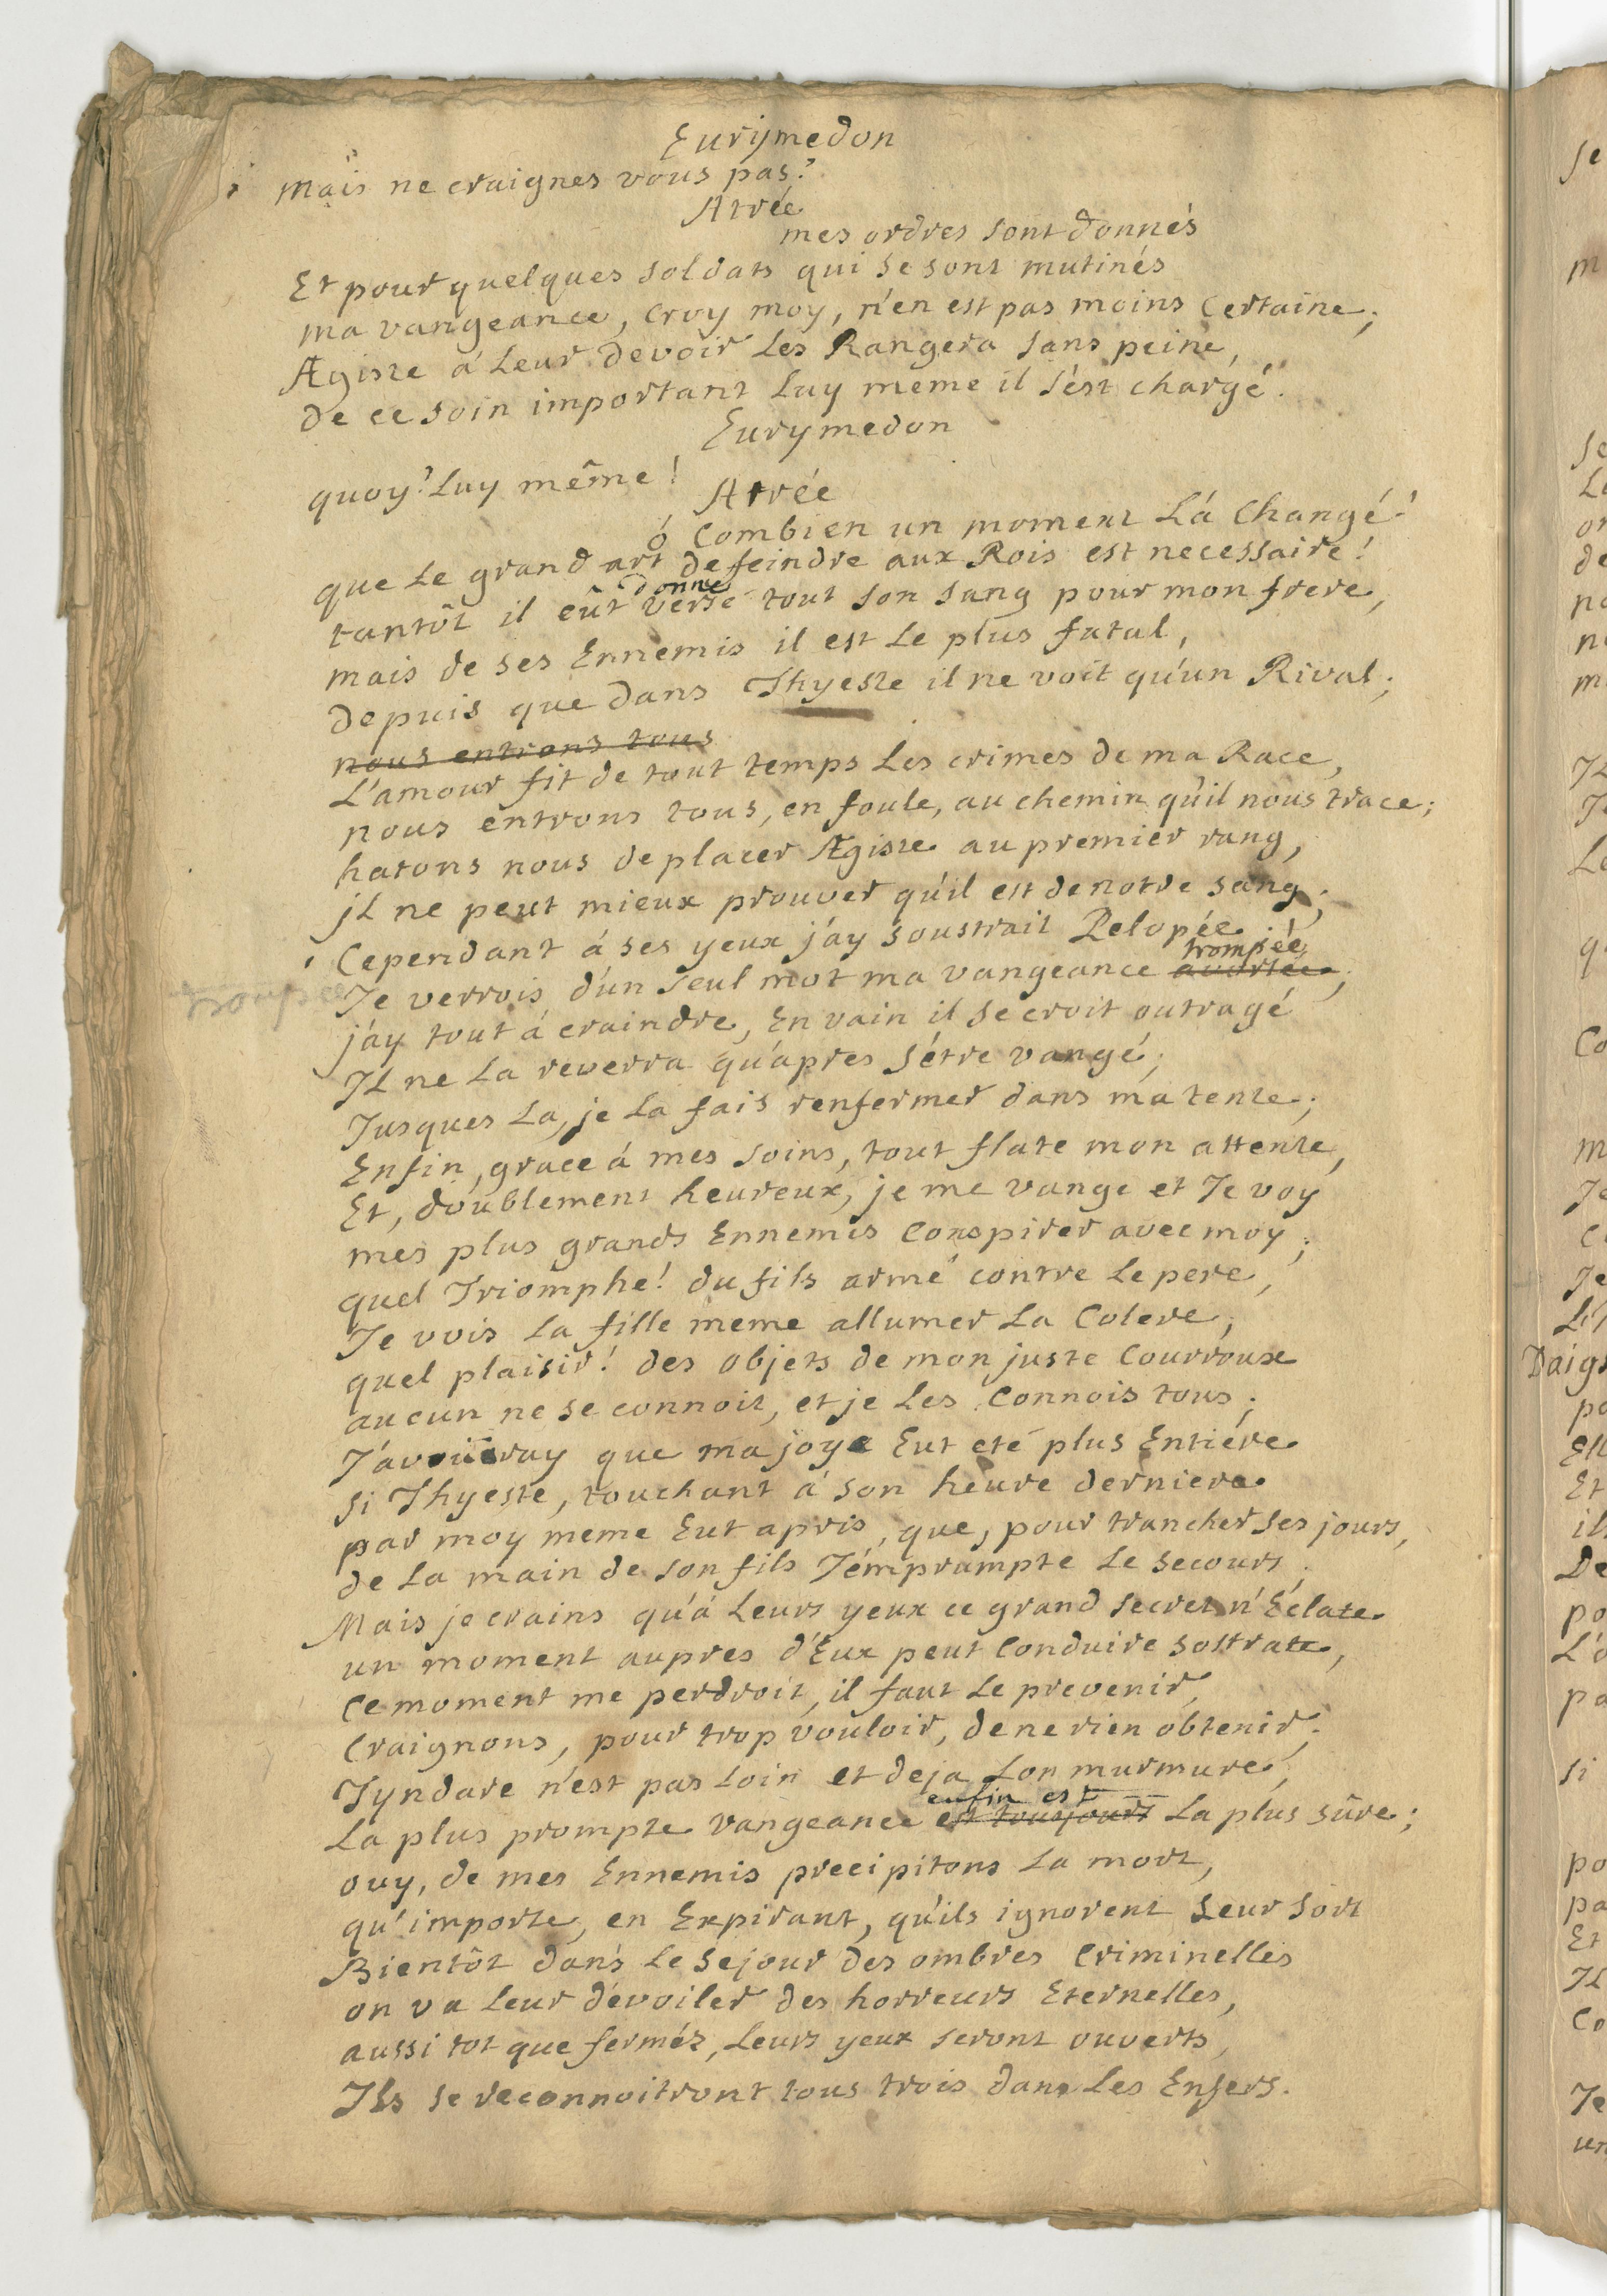 Eurymedon
mais ne craignes vous pas?
Atrée
mes ordres sont donnés
Et pour quelques soldats qui se sont mutinés
ma vangeance, croy moy, n'en est pas moins certaine;
Ægiste á Leur devoir Les Rangera sans peine,
de ce soin important Luy meme il s'est chargé.
Eurymedon
quoy? Luy même!
Atrée
ó Combien un moment L'á Changé!
que Le grand art de feindre aux Rois est necessaire!
donné
tantôt il eût versé tout son sang pour mon frere,
mais de ses Ennemis il est Le plus fatal,
depuis que dans Thyeste il ne voit qu'un Rival;
nous entrons tous
L'amour fit de tout temps Les crimes de ma Race,
nous entrons tous, en foule, au chemin qu'il nous trace;
hatons nous de placer Ægiste au premier rang,
jL ne peut mieux prouver qu'il est de notre sang;
Cependant á ses yeux j'ay soustrait Pelopée
trompée
Je verrois d'un seul mot ma vangeance avortée;
j'ay tout á craindre, En vain il se croit outragé
JL ne La reverra qu'apres s'étre vangé;
Jusques La, je La fais renfermer dans ma tente;
Enfin, grace á mes soins, tout flate mon attente,
Et, doublement heureux, je me vange et Je voy
mes plus grands Ennemis Conspirer avec moy;
quel Triomphe! du fils armé contre Le pere,
Je vois La fille meme allumer La Colere,
quel plaisir! des objets de mon juste Courroux
aucun ne se connoit, et je Les Connois tous;
J'avoüeray que ma joye Eut eté plus Entiére
si Thyeste, touchant á son heure derniere
par moy meme Eut apris, que, pour trancher ses jours,
de La main de son fils J'émprumpte Le secours;
Mais je crains qu'á Leurs yeux ce grand secret n'Éclate
un moment aupres d'Eux peut Conduire sostrate,
Ce moment me perdroit, il faut Le prevenir,
Craignons, pour trop vouloir, de ne rien obtenir;
Tyndare n'est pas Loin et deja L'on murmure,
enfin est
La plus prompte vangeance est tousjours La plus sûre;
ouy, de mes Ennemis precipitons La mort,
qu'importe, en Expirant, qu'ils ignorent Leur sort
Bientôt dans Le sejour des ombres Criminelles
on va Leur dévoiler des horreurs Eternelles,
aussi tot que fermés, Leurs yeux seront ouverts,
Ils se reconnoitront tous trois dans Les Enfers.